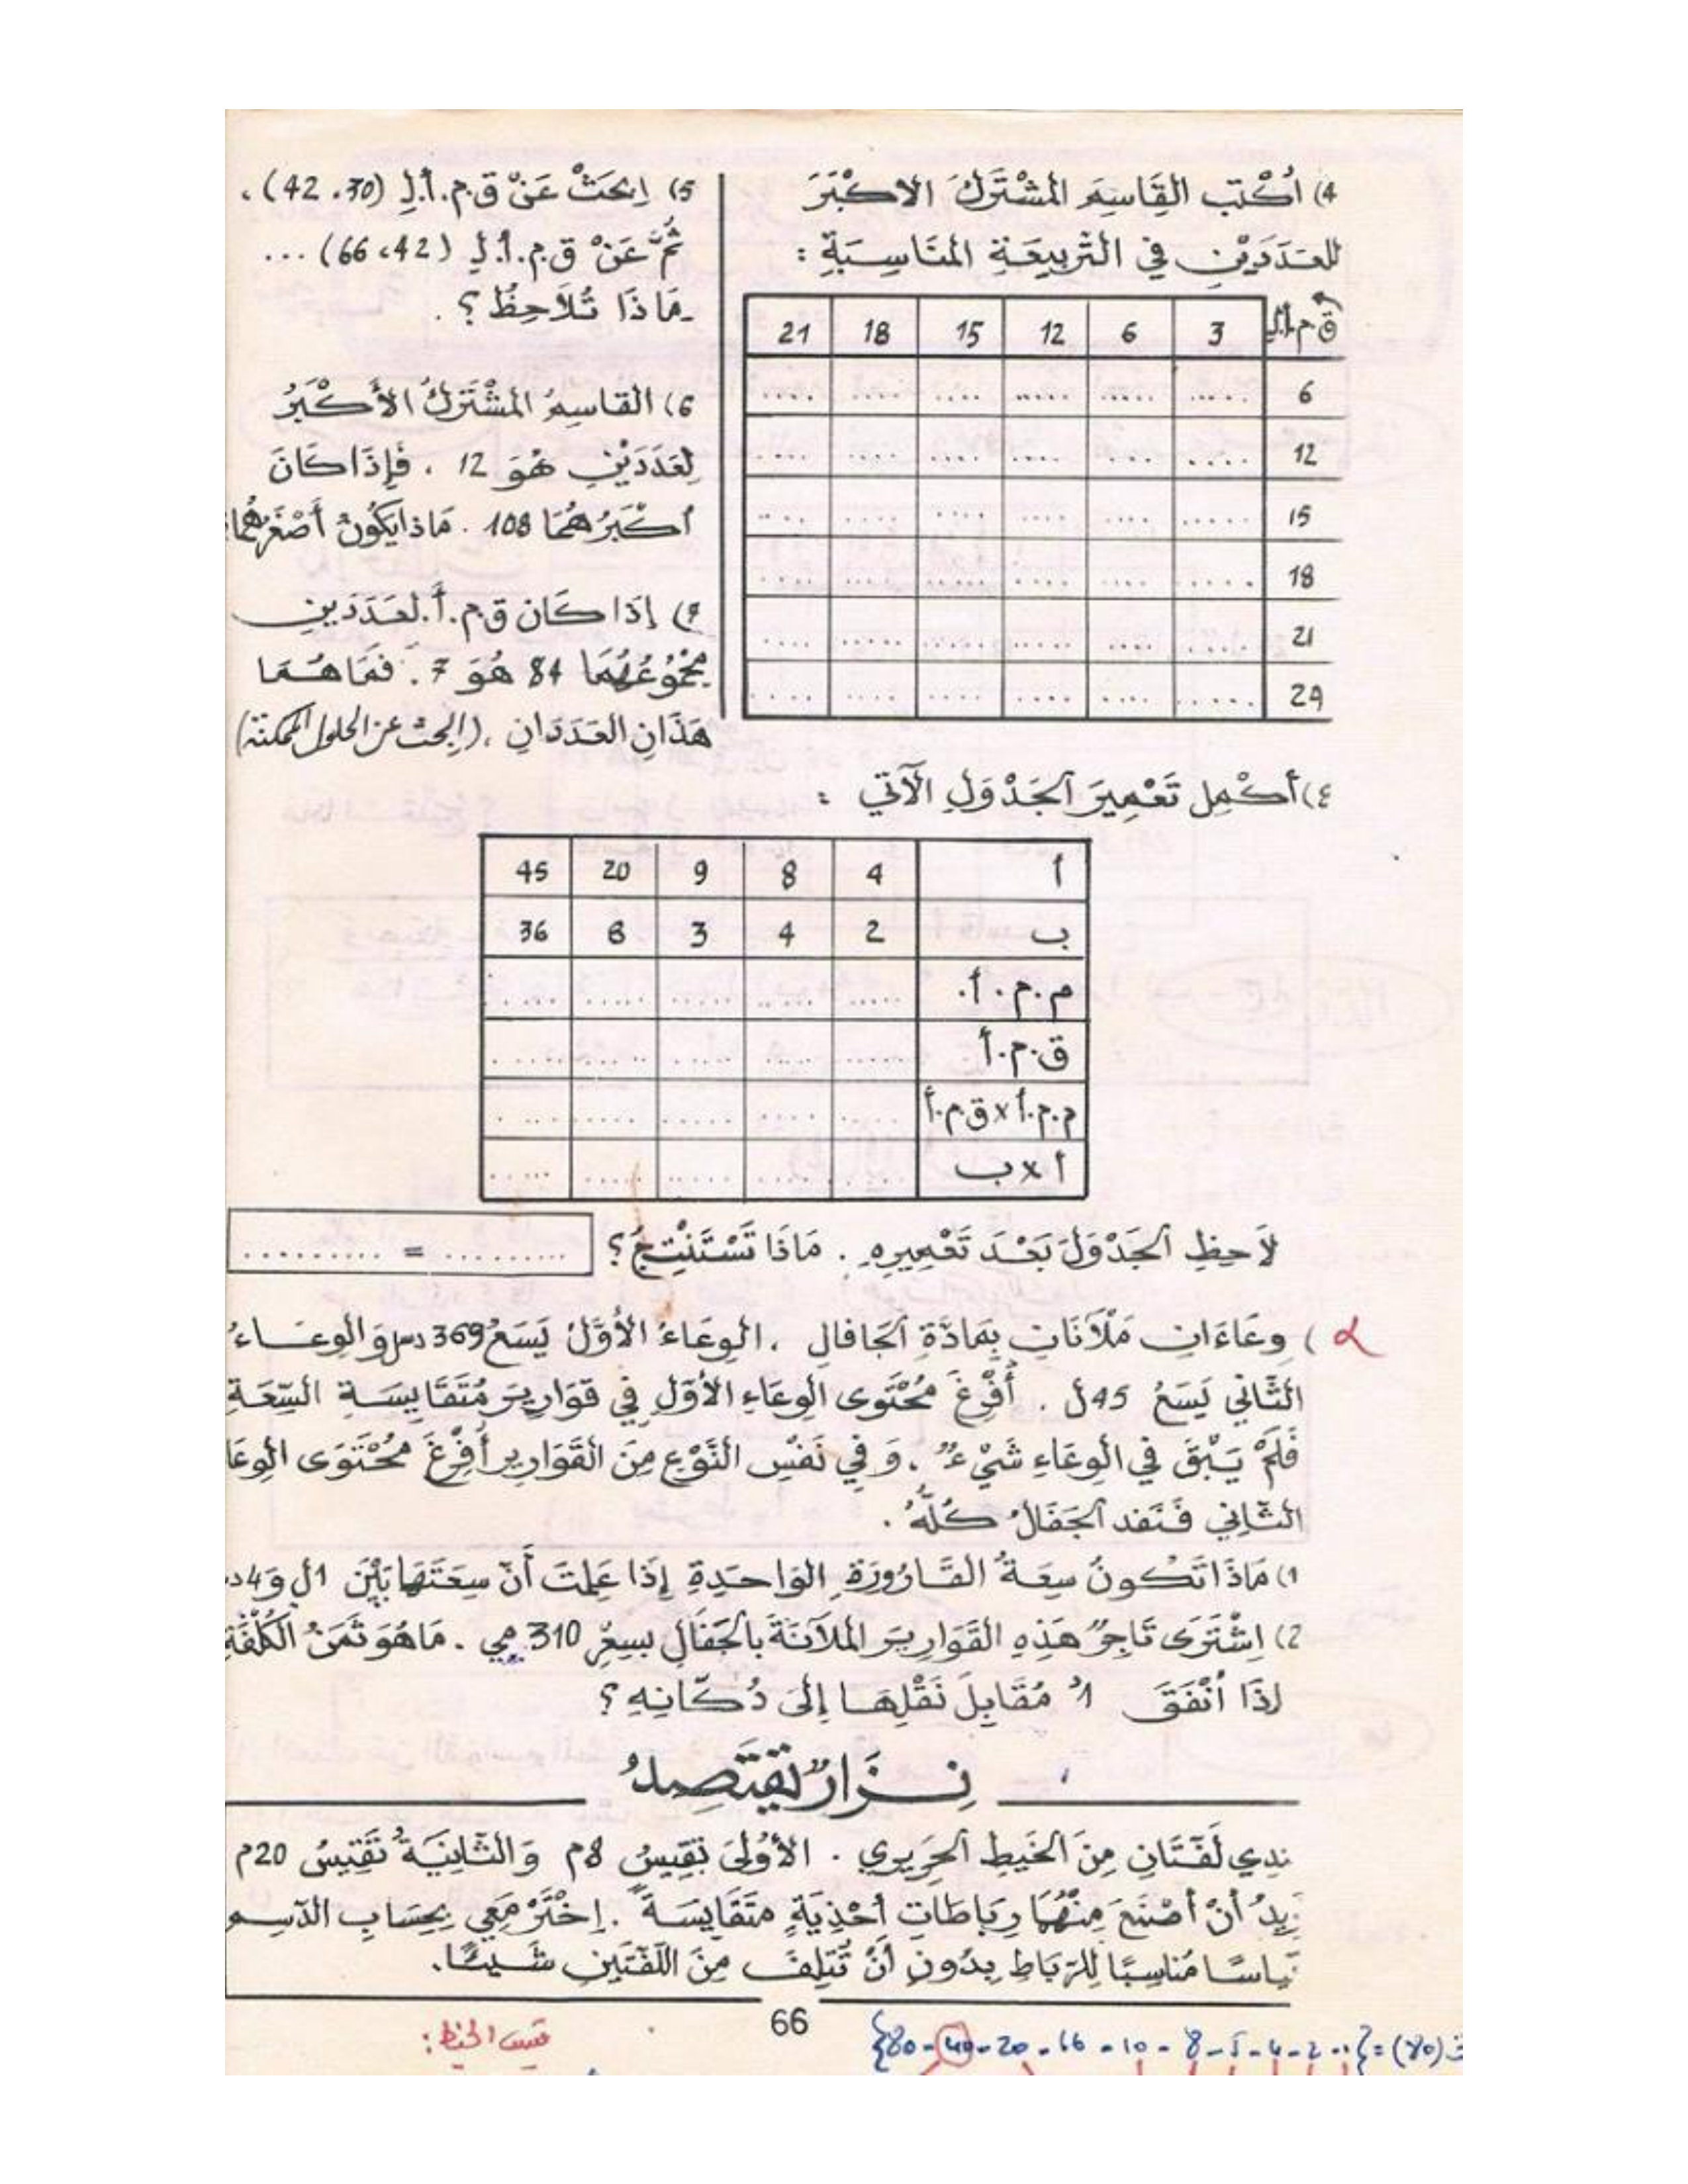 4) اُكْتُب القَاسِمَ المُشْتَرَكَ الاكْبَرَ
للعَدَدَيْنِ في التَّربِيعَةِ المنَاسِبَةِ :
ق.م.أ.لِ 3 6 12 15 18 21
6 ..... ..... ..... .... .... ....
12 .... ... .... .... .... ....
15 ..... .... .... .... .... ....
18 ..... .... .... ..... .... ....
21 ..... .... ..... ...... ..... ....
24 ..... .... .... .... .... ....
5) اِبْحَثْ عَنْ ق.م.أ.لِ (30، 42).
ثُمَّ عَنْ ق.م.أ.لِ (42، 66) ...
مَاذَا تُلاَحِظُ؟.
6) القاسِمُ المُشْتَرَكُ الأَكْبَرُ
لِعَدَدَيْنِ هُوَ 12 . فَإِذَا كَانَ
أكْبَرُهُمَا 108 . مَاذا يَكُونُ أَصْغَرُهُمَا
إِذَا كَانَ ق.م.أ. لعَدَدَينِ
مَجْمُوعُهُمَا 84 هُوَ 7 . فَمَا هُمَا
هَذَانِ العَدَدَانِ ، (اِبحث عن الحلول الممكنة)
٤) أَكْمِل تَعْمِيرَ الجَدْوَلِ الآتي :
أ 4 8 9 20 45
ب 2 4 3 8 36
م.م.أ. ..... ..... ..... ..... .....
ق.م.أ ..... ..... ..... ..... .....
م.م.أ x ق.م.أ ..... ..... ..... ..... .....
أ x ب ..... ..... ..... ..... .....
لاَحِظِ الجَدْوَلَ بَعْدَ تَعْمِيرِهِ . مَاذَا تَسْتَنْتِجُ؟ .......... = .........
) وِعَاءَانِ مَلْآنَانِ بِمَادَّةِ الجَافَالِ ، الوِعَاءُ الأَوَّلُ يَسَعُ 369 دسل وَالوِعَاءُ
الثَّاني يَسَعُ 45 ل . أُفْرِغَ مُحْتَوى الوِعَاءِ الأَوَّلِ في قَوَارِيرَ مُتَقَايِسَةِ السِّعَةِ
فَلَمْ يَبْقَ في الوِعَاءِ شَيْءٌ ، وَفي نَفْسِ النَّوْعِ مِنَ القَوَارِيرِ أُفْرِغَ مُحْتَوَى الوِعَا
الثَّانِي فَنَفَدَ الجَفَالُ كُلُّهُ .
1) مَاذَا تَكُونُ سِعَةُ القَارُورَةِ الوَاحِدَةِ إِذَا عَلِمْتَ أَنّ سِعَتَهَا بَيْنَ 1ل وَ 4 د
2) اِشْتَرَى تَاجِرٌ هَذِهِ القَوَارِيرَ المَلآنَةَ بالجَفَالِ بسِعْرِ 310 مي . مَا هُوَ ثَمَنُ الكُلْفَةِ
إذَا أنْفَقَ 1د مُقَابِلَ نَقْلِهَا إِلىَ دُكَّانِهِ؟
نِزَارٌ يَقْتَصِدُ
ندِي لَفَّتَانِ مِنَ الخَيطِ الحَرِيرِي . الأُولىَ تَقِيسُ 8م وَالثَّانِيَةُ تَقِيسُ 20م
رِيدُ أَنْ أَصْنَعَ مِنْهُمَا رِبَاطَاتِ أَحْذِيَةٍ مُتَقَايِسَةً . اِخْتَرْ مَعِي بِحِسَابِ الدّسِم
يَاسًا مُنَاسِبًا لِلرِّبَاطِ بِدُونِ أَنْ تُتْلِفَ مِنَ اللَّفَّتَيْنِ شَيئًا.
66
ق(80) = {1 - 2 - 4 - 5 - 8 - 10 - 16 - 20 - 40 - 80}
قيس الخيط :